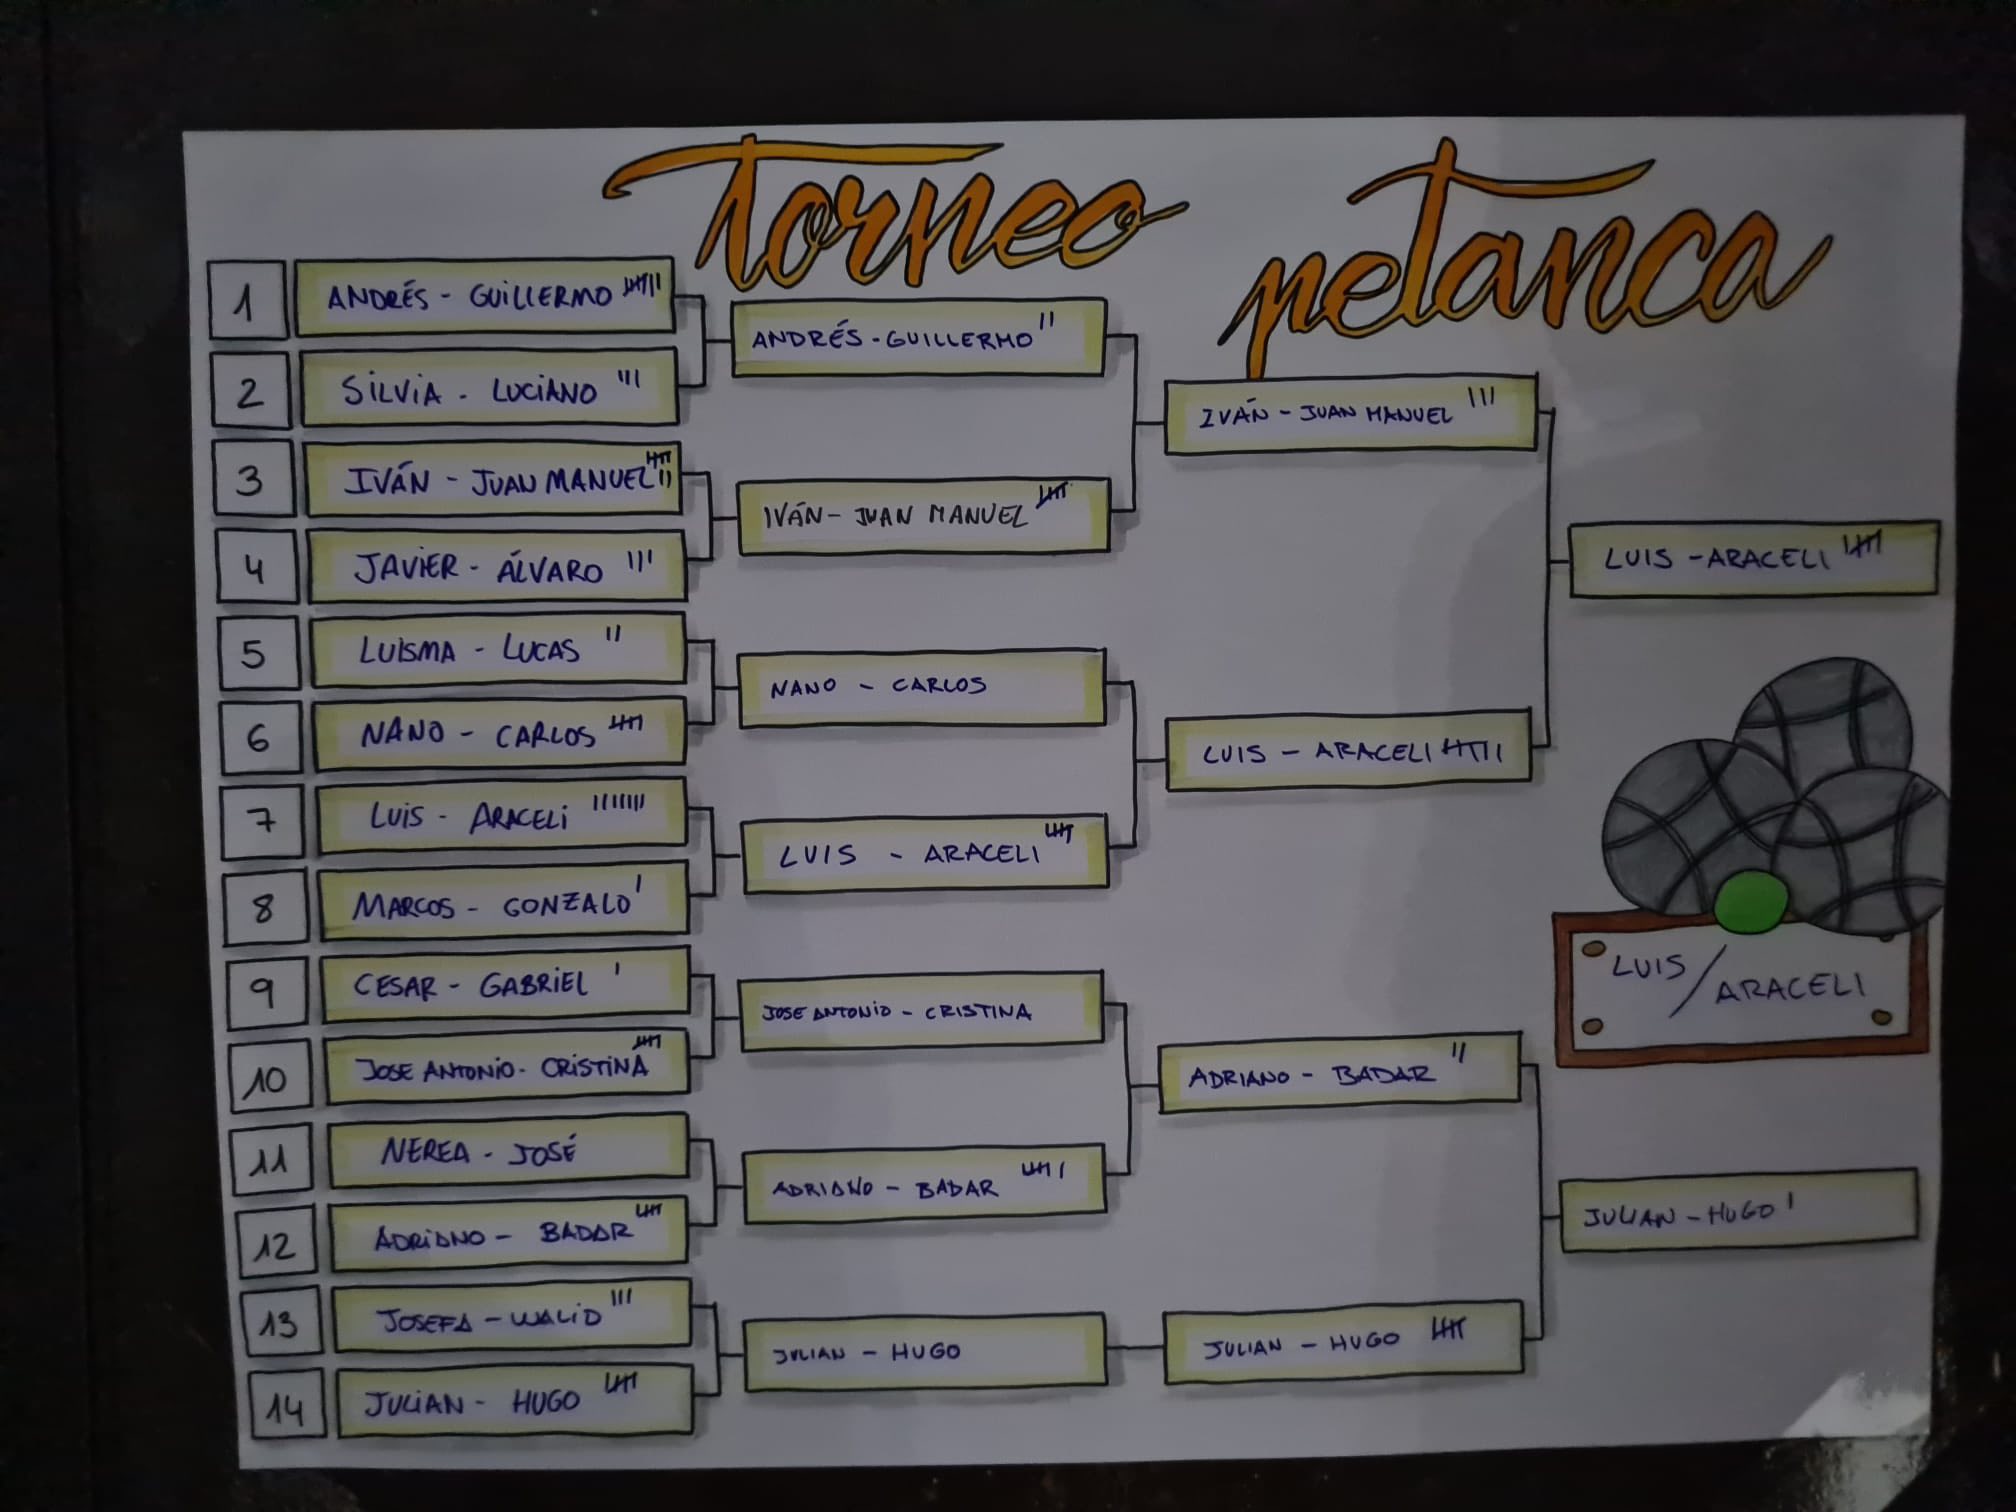 Torneo petanca
1 ANDRÉS - GUILLERMO
2 SILVIA - LUCIANO
3 IVÁN - JUAN MANUEL
4 JAVIER - ÁLVARO
5 LUISMA - LUCAS
6 NANO - CARLOS
7 LUIS - ARACELI
8 MARCOS - GONZALO
9 CESAR - GABRIEL
10 JOSE ANTONIO - CRISTINA
11 NEREA - JOSÉ
12 ADRIANO - BADAR
13 JOSEFA - WALID
14 JULIAN - HUGO
ANDRÉS - GUILLERMO
IVÁN - JUAN MANUEL
NANO - CARLOS
LUIS - ARACELI
JOSE ANTONIO - CRISTINA
ADRIANO - BADAR
JULIAN - HUGO
IVÁN - JUAN MANUEL
LUIS - ARACELI
ADRIANO - BADAR
JULIAN - HUGO
LUIS - ARACELI
JULIAN - HUGO
LUIS /
ARACELI